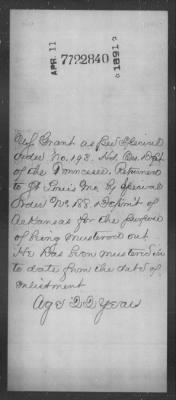 APR. 11
7792840
1891
Grant as per Special
Order No. 198. Hd. Qrs. Dept
of the Tennessee. Returned
to St Louis Mo. By Special
Order No. 188. Detmt of
Arkansas for the purpose
of being mustered out
He Has been mustered in
to date from the date of
enlistment
Age 22 Years